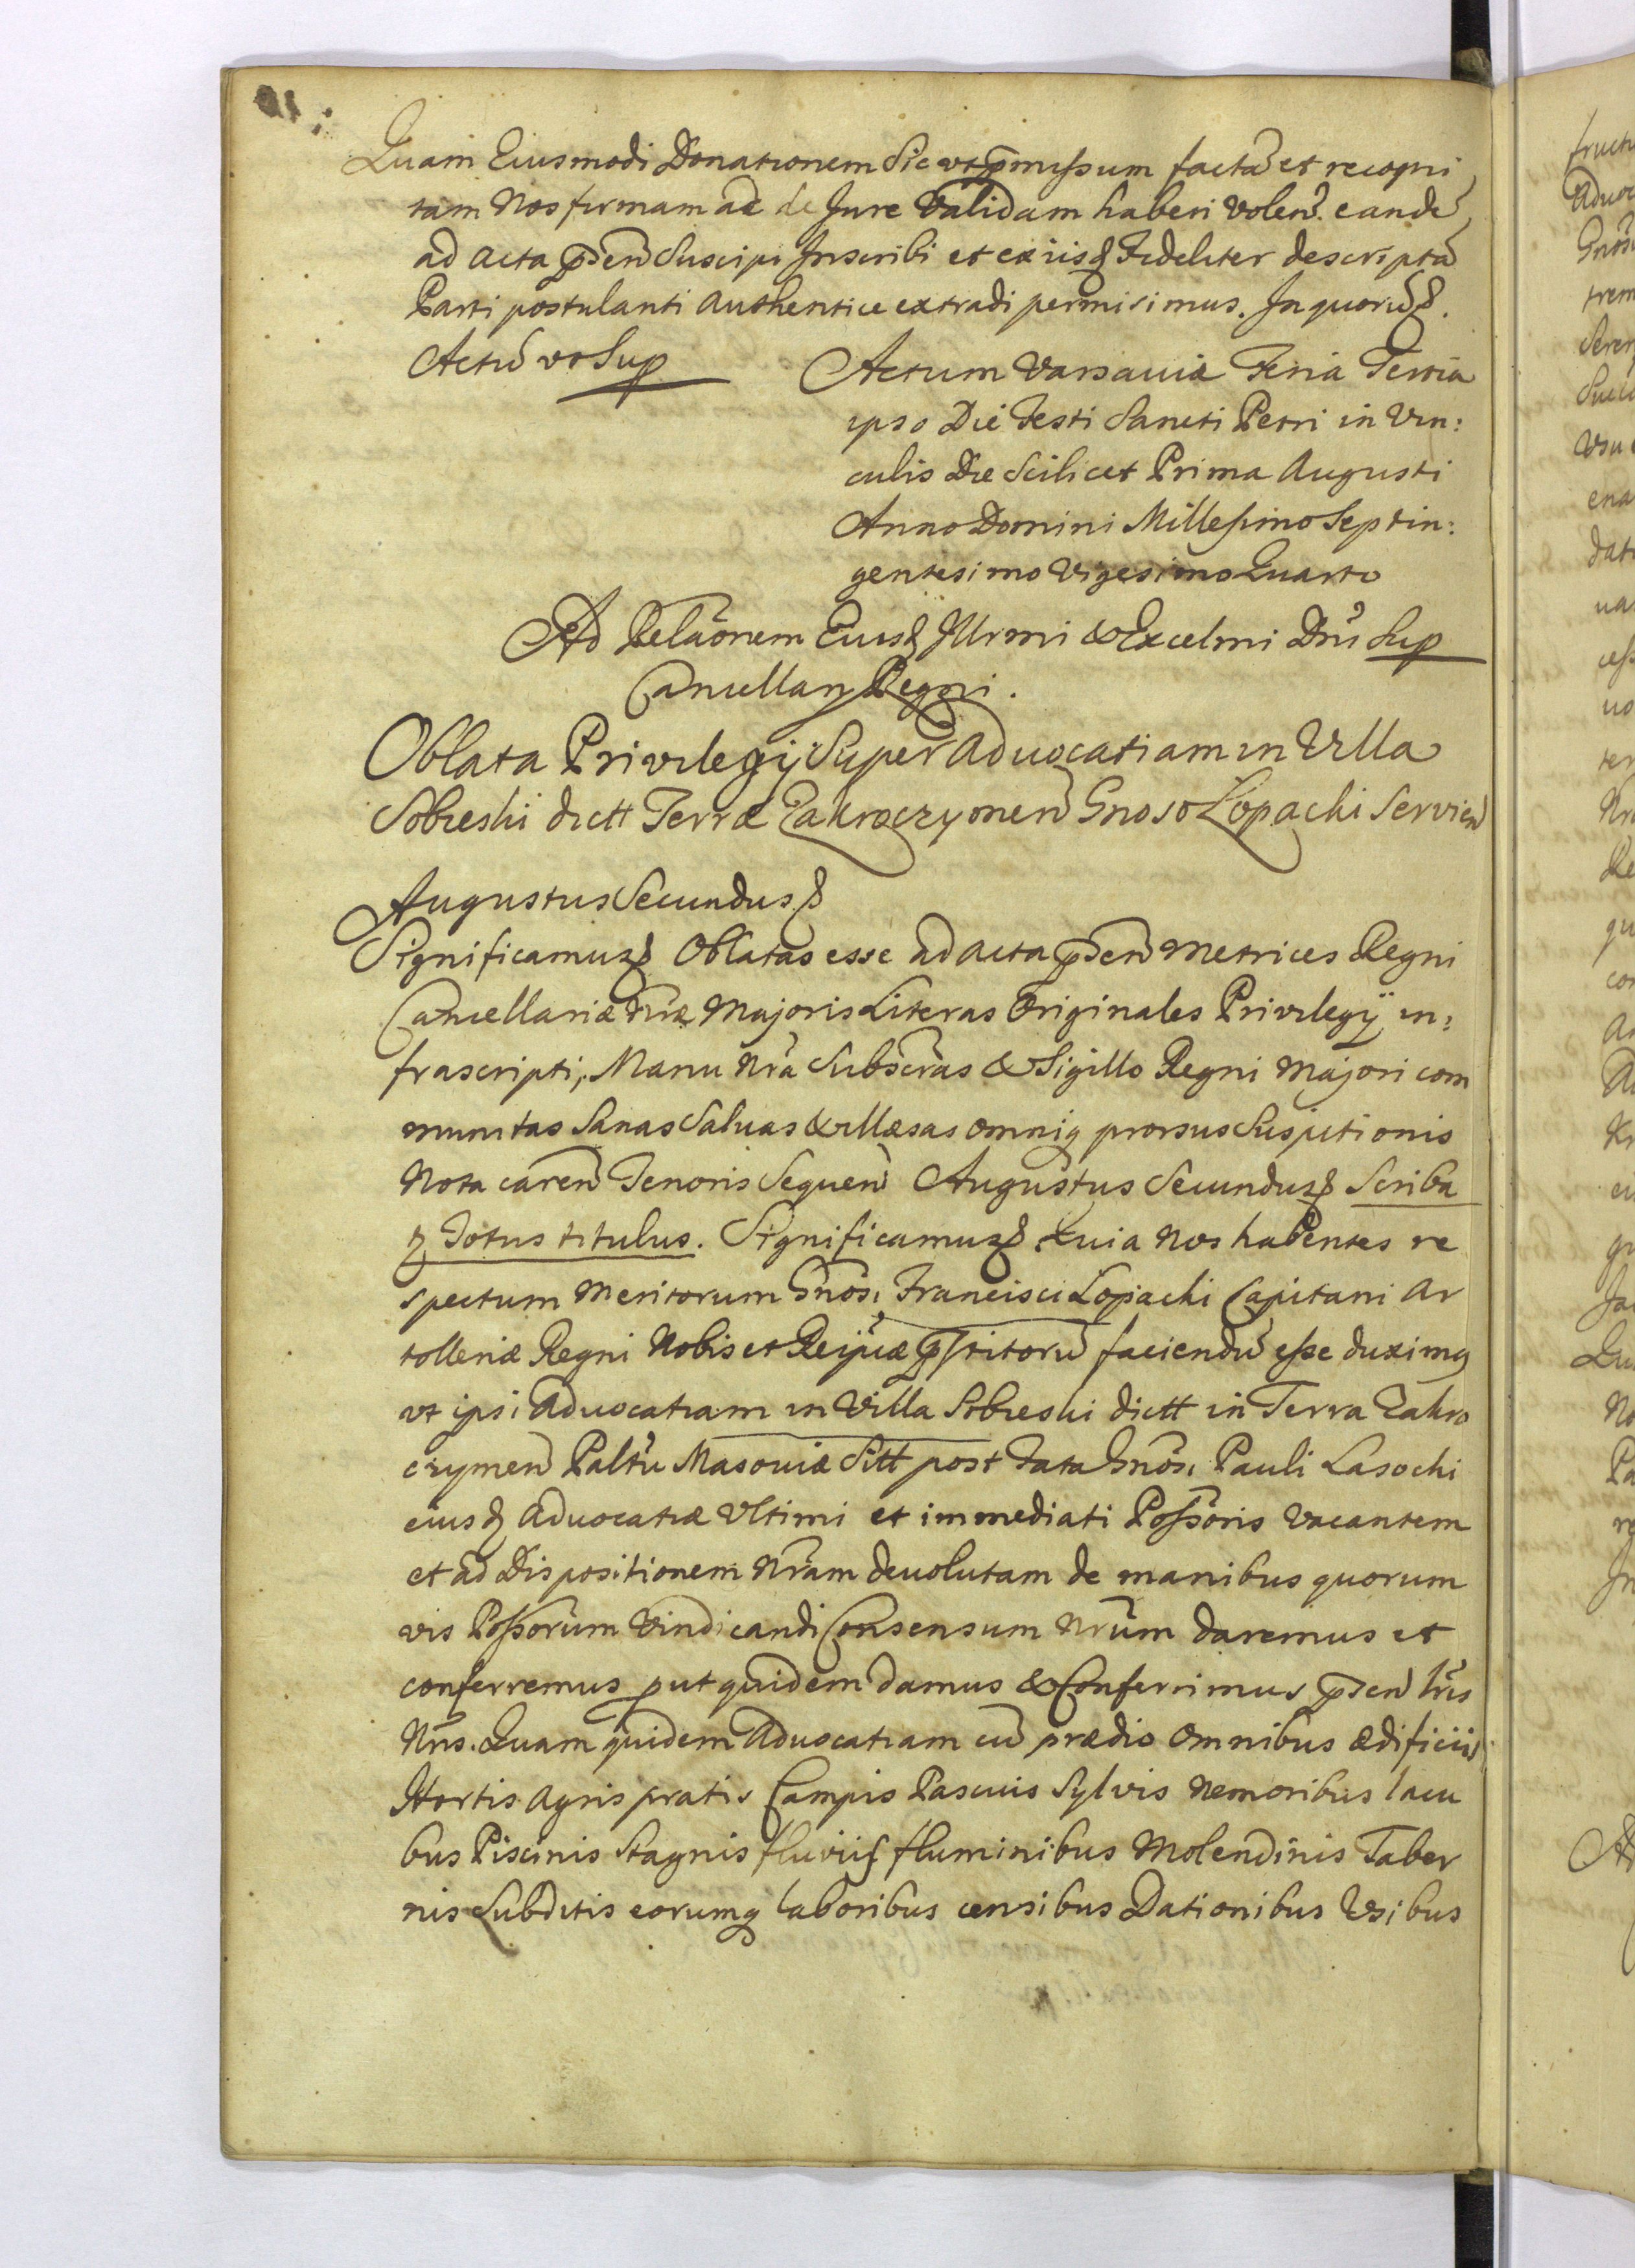 Quam Eiusmodi Donationem Sic ut p̃missum factã et recogni
tam Nos firmam ac de Jure Validam haberi Volen̄. eandẽ
ad Acta p̃sen̄ Suscipi Inscribi et ex iisđ Fideliter descriptã
Parti postulanti Authentice extradi permisimus. In quorũ &.
Actũ vt Sup
Actum Varsaviæ Feria Tertia
ipso Die Festi Sancti Petri in Vin:
culis Die Scilicet Prima Augusti
Anno Domini Millesimo Septin:
gentesimo Vigesimo Quarto
Ad Relãonem Eiusđ Illrmi & Excelmi Dñi Sup
Cancellary Regni.
Oblata Privilegij Super Advocatiam in Villa
Sobieski dictt Terræ Zakroczymen̄ Gnoso Łopacki Servien̄
Augustus Secundus &
Significamus & Oblatas esse ad Acta p̃sen̄ Metrices Regni
Cancellariæ Nr̃æ Majoris Literas Originales Privilegij in:
frascripti, Manu Nr̃a Subscr̃as & Sigillo Regni Majori com
munitas Sanas Salvas & illæsas omniq prorsus Suspitionis
Nota caren̄ Tenoris Sequen̄ Augustus Secundus & Scriba
& Totus titulus. Significamus & Quia Nos habentes re
spectum Meritorum Gnõsi Francisci Łopacki Capitani Ar
tolleriæ Regni Nobis et Reipũæ p̃stitorũ faciendũ esse duximq
vt ipsi Advocatiam in Villa Sobieski dictt in Terra Zakro
czymen̄ Paltũ Masoviæ Sitt post Fata Gnõsi Pauli Lasocki
eiusđ Advocatiæ Vltimi et immediati Poss̃oris Vacantem
et ad Dispositionem Nr̃am devolutam de manibus quorum
vis Possorũm Vindicandi Consensum Nrũm daremus et
conferremus put quidem damus & Conferimus p̃sen̄ lr̃is
Nr̃is. Quam quidem Advocatiam cũ prædio Omnibus ædificiis
Hortis Agris pratis Campis Pascuis Sylvis Nemoribus lacu
bus Piscinis Stagnis fluviis fluminibus Molendinis Taber
nis Subditis eorumq laboribus censibus Dationibus Vsibus